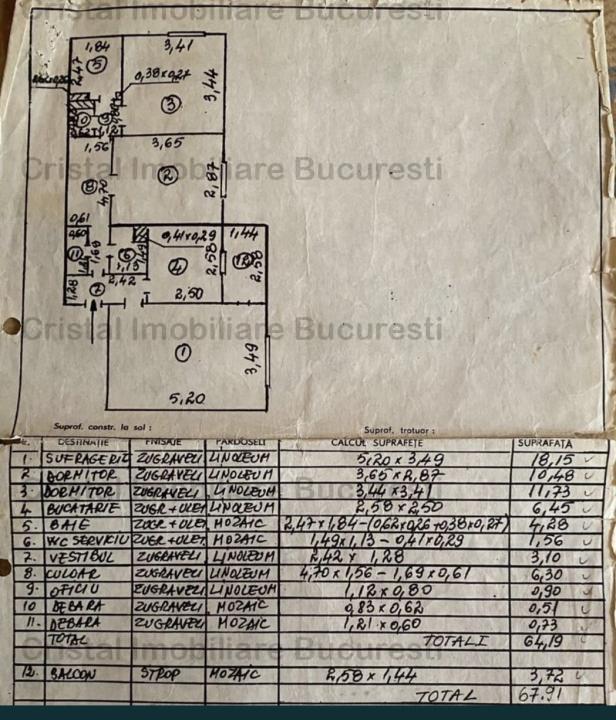 Cristal Imobiliare Bucuresti
1,84
3,41
2,47
5
0,38 x 0,27
3,44
3
1,12
1,56
3,65
Cristal Imobiliare Bucuresti
8
2
2,87
4,70
0,61
0,60
0,41 x 0,29
1,44
1,69
11
6
1,49
4
2,58
12
2,58
1,13
2,42
1,28
7
2,50
Cristal Imobiliare Bucuresti
1
3,49
5,20
Suprof. constr. la sol :
Suprof. trotuar :
DESTINAȚIE FINISAJE PARDOSELI CALCUL SUPRAFEȚE SUPRAFAȚA
1. SUFRAGERIE ZUGRAVELI LINOLEUM 5,20 x 3,49 18,15
2 DORMITOR ZUGRAVELI LINOLEUM 3,65 x 2,87 10,48
3 DORMITOR ZUGRAVELI LINOLEUM 3,44 x 3,41 11,73
4 BUCATARIE ZUGR + ULEI LINOLEUM 2,58 x 2,50 6,45
5. BAIE ZUGR + ULEI MOZAIC 2,47 x 1,84 - (0,62 x 0,26 + 0,38 x 0,27) 4,28
6. WC SERVICIU ZUGR + ULEI MOZAIC 1,49 x 1,13 - 0,41 x 0,29 1,56
7. VESTIBUL ZUGRAVELI LINOLEUM 2,42 x 1,28 3,10
8. CULOAR ZUGRAVELI LINOLEUM 4,70 x 1,56 - 1,69 x 0,61 6,30
9. OFICIU ZUGRAVELI LINOLEUM 1,12 x 0,80 0,90
10 DEBARA ZUGRAVELI MOZAIC 0,83 x 0,62 0,51
11. DEBARA ZUGRAVELI MOZAIC 1,21 x 0,60 0,73
TOTAL TOTAL I 64,19
12. BALCON STROP MOZAIC 2,58 x 1,44 3,72
TOTAL 67.91